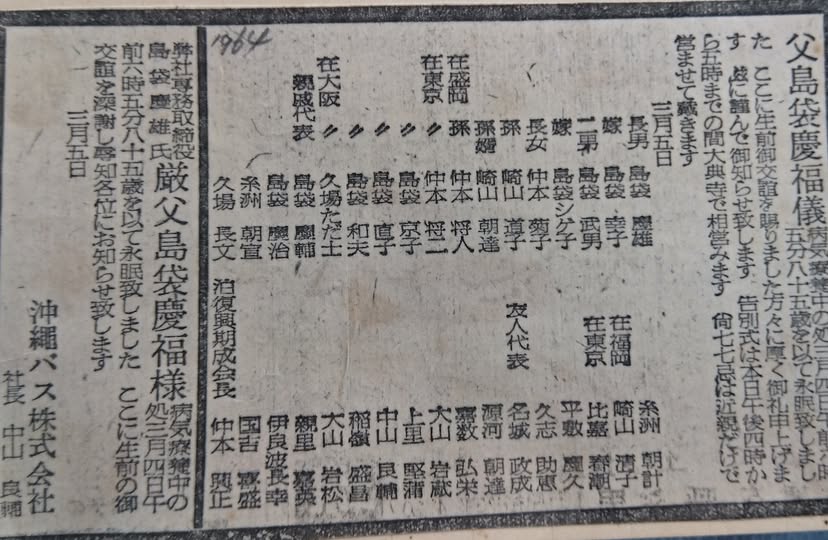 父島袋慶福儀
病気療養中の処三月四日午前六時
五分八十五歳を以て永眠致しまし
た ここに生前御交誼を賜りました方々に厚く御礼申上げま
す 玆に謹んで御知らせ致します 告別式は本日午後四時か
ら五時までの間大典寺で相営みます 尚七七忌は近親だけで
営ませて戴きます
三月五日
長男 島袋 慶雄
嫁 島袋 幸子
二男 島袋 武男
嫁 島袋シゲ子
長女 仲本 菊子
孫 崎山 道子
孫婿 崎山 朝達
在盛岡 孫 仲本 将人
在東京 〃 仲本 将二
〃 島袋 京子
〃 島袋 直子
〃 島袋 和夫
在大阪 〃 久場ただ士
親戚代表 島袋 慶輔
島袋 慶治
糸洲 朝宣
久場 長文
糸洲 朝計
在福岡 崎山 清子
在東京 比嘉 春潮
平敷 慶久
久志 助恵
友人代表 名城 政成
源河 朝達
嘉数 弘栄
大山 岩蔵
上里 堅蒲
中山 良輔
稲嶺 盛昌
大山 岩松
親里 嘉英
伊良波長幸
国吉 喜盛
泊復興期成会長 仲本 興正
1964
弊社専務取締役
島袋 慶雄氏
厳父島袋慶福様
病気療養中の
処三月四日午
前六時五分八十五歳を以て永眠致しました ここに生前の御
交誼を深謝し辱知各位にお知らせ致します
三月五日
沖縄バス株式会社
社長 中山 良輔